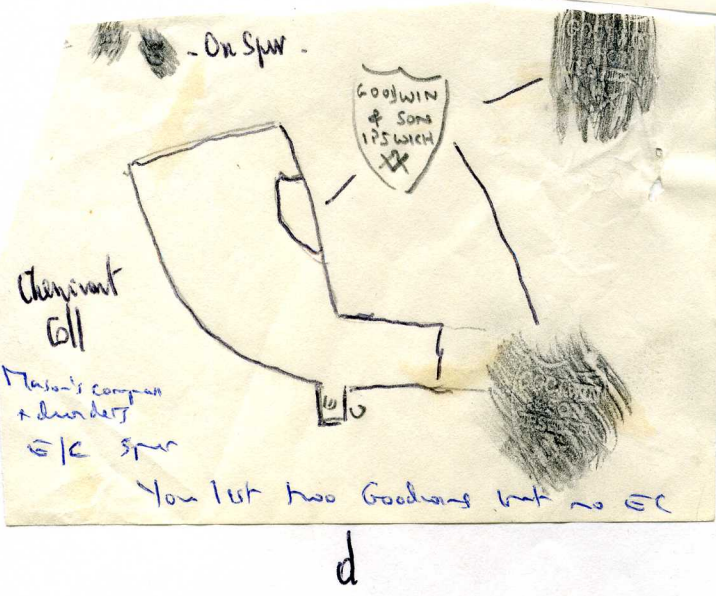 - On Spur -
GOODWIN
& SON
IPSWICH
XX
GOODWIN
SON
Coll
Mason's compass
& dividers
E/C Spur
You list two Goodwins but no EC
d